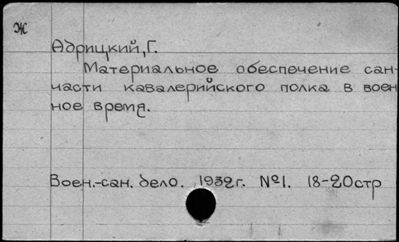 Ж
Адрицкий, Г.
Материальное обеспечение сан-
части кавалерийского полка в воен
ное время.
Воен.-сан. дело. 1932г. №1. 18-20стр